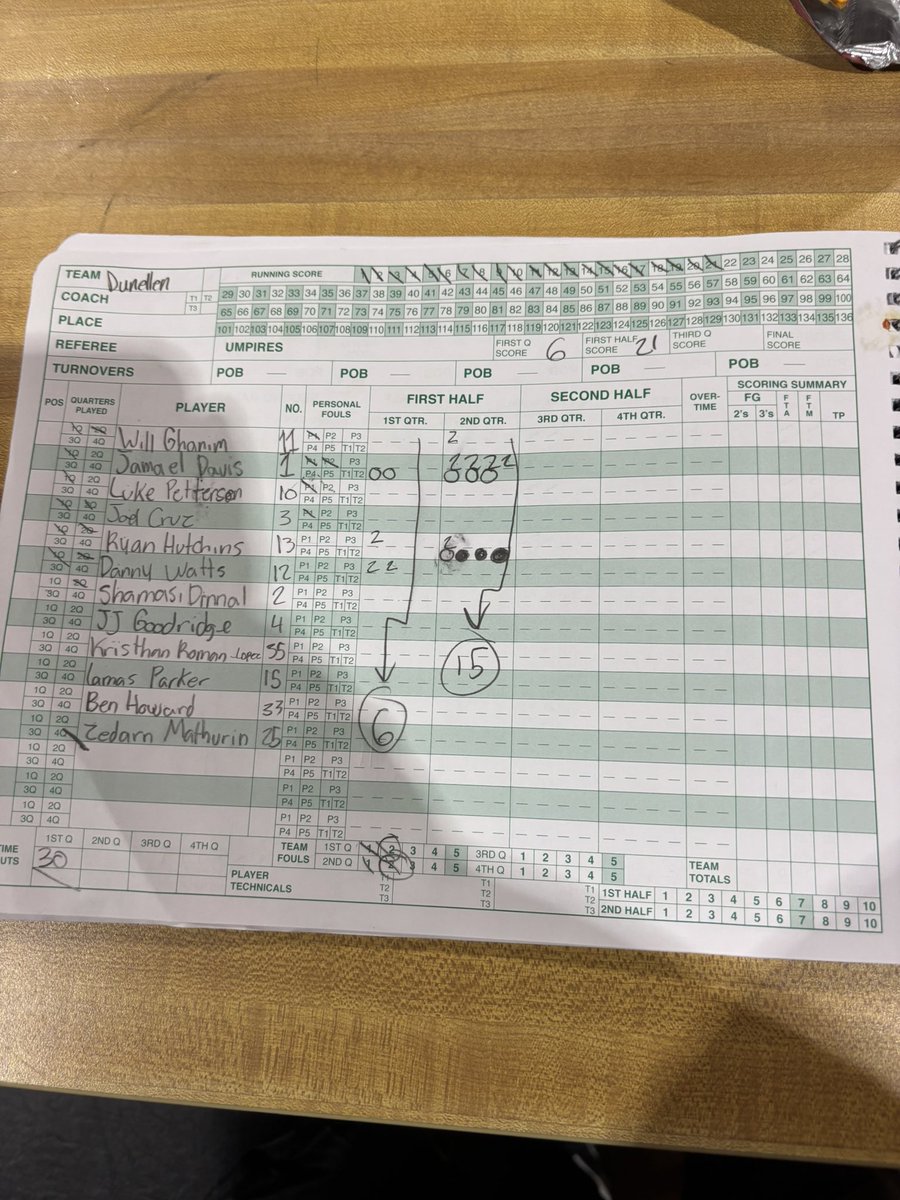 TEAM Dunellen RUNNING SCORE 1 2 3 4 5 6 7 8 9 10 11 12 13 14 15 16 17 18 19 20 21 22 23 24 25 26 27 28
COACH T1 T2 T3 29 30 31 32 33 34 35 36 37 38 39 40 41 42 43 44 45 46 47 48 49 50 51 52 53 54 55 56 57 58 59 60 61 62 63 64
65 66 67 68 69 70 71 72 73 74 75 76 77 78 79 80 81 82 83 84 85 86 87 88 89 90 91 92 93 94 95 96 97 98 99 100
PLACE 101 102 103 104 105 106 107 108 109 110 111 112 113 114 115 116 117 118 119 120 121 122 123 124 125 126 127 128 129 130 131 132 133 134 135 136
REFEREE UMPIRES FIRST Q SCORE 6 FIRST HALF SCORE 21 THIRD Q SCORE FINAL SCORE
TURNOVERS POB POB POB POB POB
POS QUARTERS PLAYED PLAYER NO. PERSONAL FOULS FIRST HALF SECOND HALF OVER-TIME SCORING SUMMARY
1ST QTR. 2ND QTR. 3RD QTR. 4TH QTR. FG 2's 3's FTA FTM TP
1Q 2Q 3Q 4Q Will Ghanim 11 P1 P2 P3 P4 P5 T1 T2 2
1Q 2Q 3Q 4Q Jamael Davis 1 P1 P2 P3 P4 P5 T1 T2 00 2
1Q 2Q 3Q 4Q Luke Petterson 10 P1 P2 P3 P4 P5 T1 T2
1Q 2Q 3Q 4Q Joel Cruz 3 P1 P2 P3 P4 P5 T1 T2
1Q 2Q 3Q 4Q Ryan Hutchins 13 P1 P2 P3 P4 P5 T1 T2 2 2
1Q 2Q 3Q 4Q Danny Watts 12 P1 P2 P3 P4 P5 T1 T2 2 2
1Q 2Q 3Q 4Q Shamasi 2 P1 P2 P3 P4 P5 T1 T2
1Q 2Q 3Q 4Q JJ Goodridge 4 P1 P2 P3 P4 P5 T1 T2
1Q 2Q 3Q 4Q Kristhan Roman-Lopez 55 P1 P2 P3 P4 P5 T1 T2 15
1Q 2Q 3Q 4Q Lamas Parker 15 P1 P2 P3 P4 P5 T1 T2
1Q 2Q 3Q 4Q Ben Howard 33 P1 P2 P3 P4 P5 T1 T2 6
1Q 2Q 3Q 4Q Zedarn Mathurin 25 P1 P2 P3 P4 P5 T1 T2
1Q 2Q 3Q 4Q P1 P2 P3 P4 P5 T1 T2
1Q 2Q 3Q 4Q P1 P2 P3 P4 P5 T1 T2
1Q 2Q 3Q 4Q P1 P2 P3 P4 P5 T1 T2
1Q 2Q 3Q 4Q P1 P2 P3 P4 P5 T1 T2
1ST Q 2ND Q 3RD Q 4TH Q TEAM FOULS 1ST Q 1 2 3 4 5 3RD Q 1 2 3 4 5 TEAM TOTALS
30 2ND Q 1 2 3 4 5 4TH Q 1 2 3 4 5
PLAYER TECHNICALS T1 T2 T3 T1 T2 T3 T1 T2 T3 1ST HALF 1 2 3 4 5 6 7 8 9 10
2ND HALF 1 2 3 4 5 6 7 8 9 10